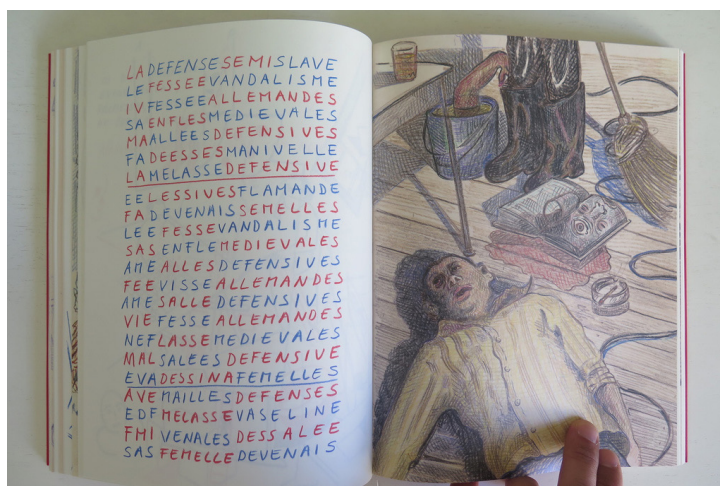 LADEFENSESEMISLAVE
LEFESSEEVANDALISME
IVFESSEEALLEMANDES
SAENFLESMEDIEVALES
MAALLEESDEFENSIVES
FADEESSESMANIVELLE
LAMELASSEDEFENSIVE
EELESSIVESFLAMANDE
FADEVENAISSEMELLES
LEEFESSEVANDALISME
SASENFLEMEDIEVALES
AMEALLESDEFENSIVES
FEEVISSEALLEMANDES
AMESALLEDEFENSIVES
VIEFESSEALLEMANDES
NEFLASSEMEDIEVALES
MALSALEESDEFENSIVE
EVADESSINAFEMELLES
AVEMAILLESDEFENSES
EDFMELASSEVASELINE
FMIVENALESDESSALEE
SASFEMELLEDEVENAIS